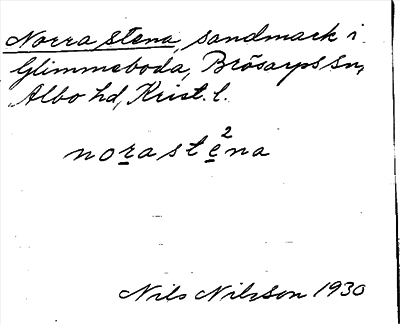 Norra stena, sandmark i
Glimmeboda, Brösarps sn,
Albo hd, Krist. l.
norastę²na
Nils Nilsson 1930